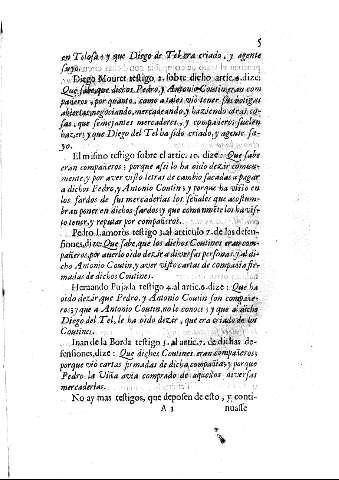 5
en Tolosa; y que Diego de Tel era criado, y agente
suyo.
Diego Mouret testigo 2. sobre dicho artic. 6. dize:
Que sabe que dichos Pedro, y Antonio Coutin eran com
pañeros, por quanto, como a tales viò tener sus botigas
abiertas, negociando, mercadeando, y haziendo otras co-
sas, que semejantes mercaderes, y compañeros suelen
hazer; y que Diego del Tel ha sido criado, y agente su-
yo.
El mismo testigo sobre el artic. 10. dize: Que sabe
eran compañeros; porque assi lo ha oido dezir comun-
mente, y por aver visto letras de cambio sacadas a pagar
a dichos Pedro, y Antonio Coutin; y porque ha visto en
los fardos de sus mercaderias los señales que acostum-
bran poner en dichos fardos; y que comunmente los ha vis-
to tener, y reputar por compañeros.
Pedro Lamoròs testigo 3. al articulo 7. de las defen-
siones, dize: Que sabe, que los dichos Coutines eran com-
pañeros, por averlo oido dezir a diversas personas, y al di-
cho Antonio Coutin, y aver visto cartas de compañia fir-
madas de dichos Coutines.
Hernando Pujala testigo 4. al artic. 9. dize: Que ha
oido dezir, que Pedro, y Antonio Coutin son compañe-
ros; y que a Antonio Coutin, no lo conoce; y que al dicho
Diego del Tel, le ha oido dezir, que era criado de los
Coutines.
Iuan de la Borda testigo 5. al artic. 7. de dichas de-
fensiones, dize: Que dichos Coutines eran compañeros;
porque viò cartas firmadas de dicha compañia; y porque
Pedro la Viña avia comprado de aquellos diversas
mercaderias.
No ay mas testigos, que deposen de esto, y conti-
A 3 nuasse